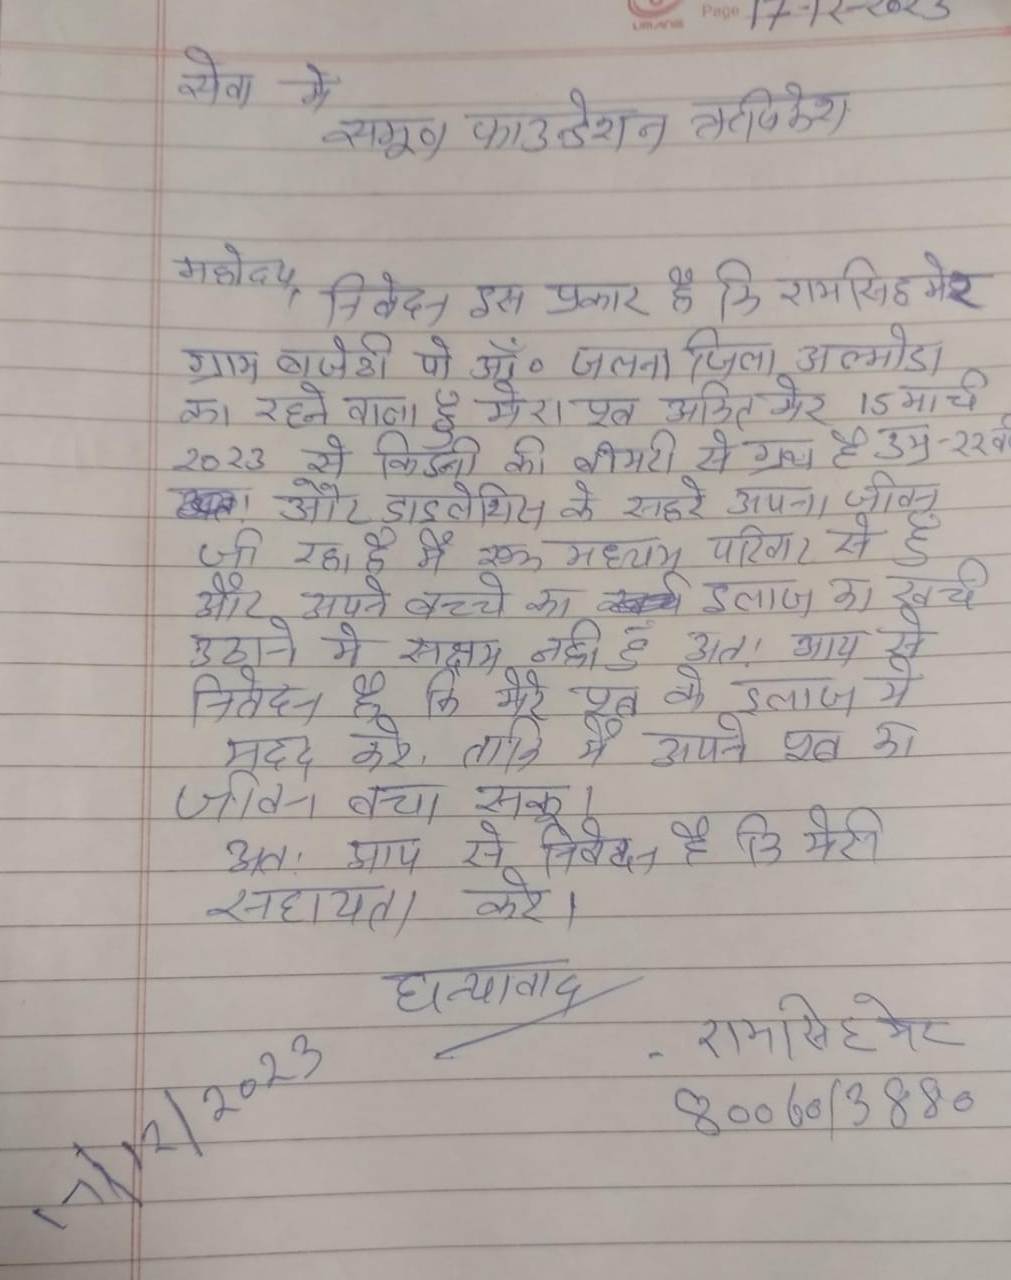 Page 17-12-2023
सेवा मे
समूण फाउन्डेशन ऋषिकेश
महोदय,
निवेदन इस प्रकार है कि रामसिह मेर
ग्राम बजेठी पो ऑ० जलना जिला अल्मोडा
का रहने वाला हूँ मेरा पुत्र अमित मेर 15 मार्च
2023 से किडनी की बीमरी से ग्रस्त है उम्र-22वर्ष
और डाइलेसिस के सहरे अपना जीवन
जी रहा है मैं एक मध्यम परिवार से हूँ
और अपने बच्चे का इलाज का खर्च
उठाने मे सक्षम नही हूँ अतः आप से
निवेदन है कि मेरे पुत्र के इलाज मे
मदद करे, ताकि मैं अपने पुत्र का
जीवन बचा सकू।
अतः आप से निवेदन है कि मेरी
सहायता करे।
धन्यावाद
- रामसिह मेर
8006013880
17/12/2023